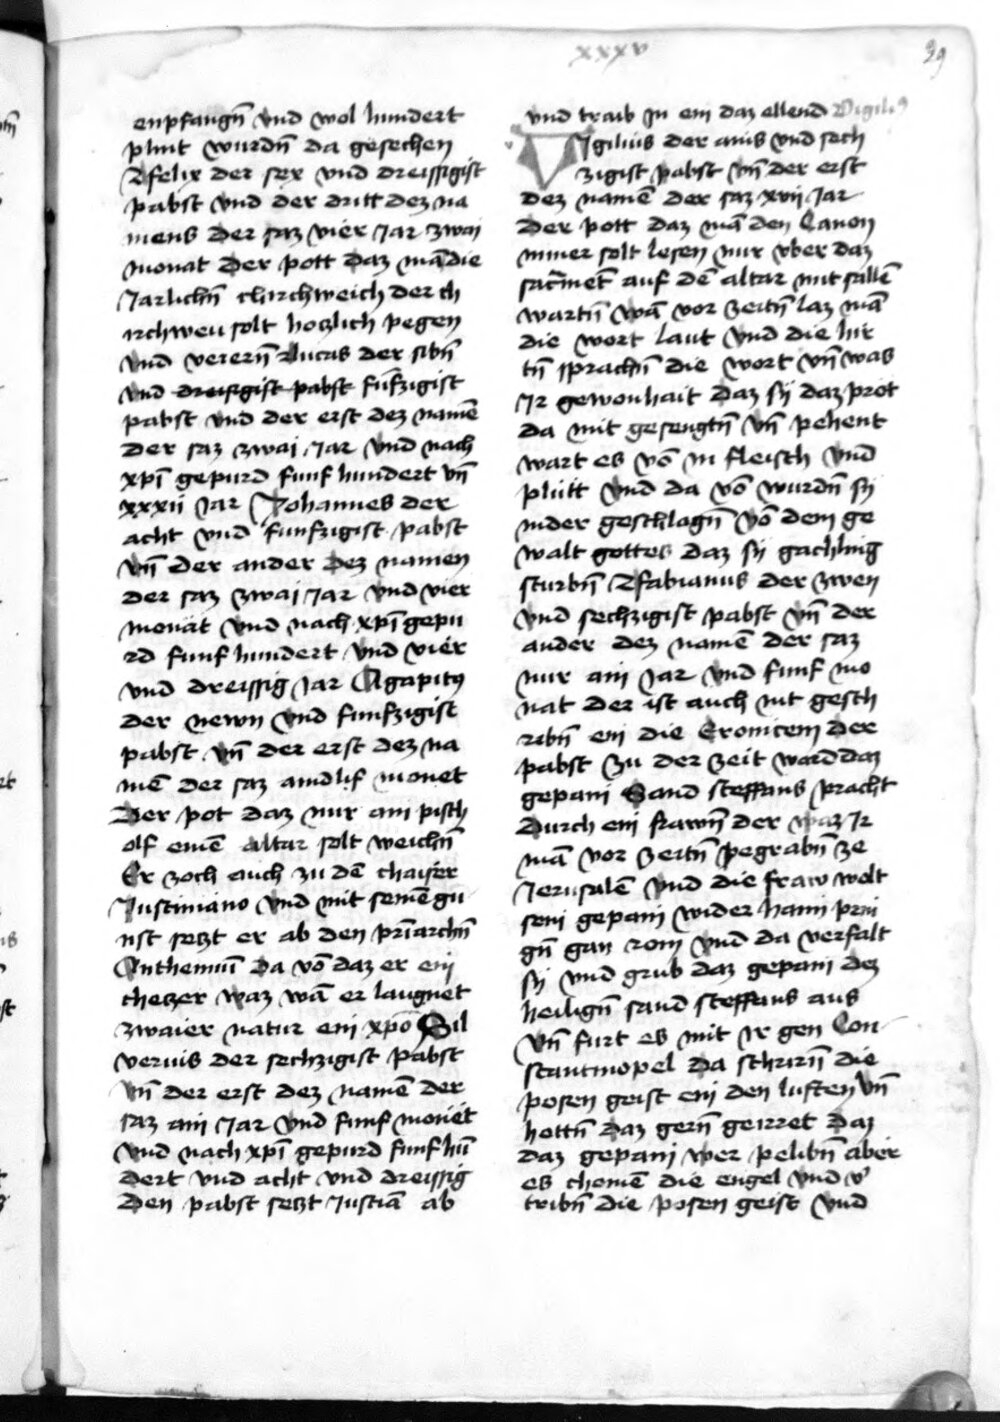 xxxv
39
enpfangn̄ vnd wol hundert
plut wurdn̄ da gesechen
felix der sex vnd dreissigist
pabst vnd der dritt dez na
mens der saz vier Jar zwai
monat Der pott daz mā die
Jarlichn̄ chirchweich der ch
irchweu solt hoczlich pegen
vnd verern̄ lucas der sibn̄
vnd dreisigist pabst funfzigist
pabst vnd der erst dez namē
der saz zwai Jar vnd nach
xp̄i gepurd funf hundert vn̄
xxxii Jar Johannes der
acht vnd funfzigist pabst
vn̄ der ander dez namen
der saz zwai Jar vnd vier
monat vnd nach xp̄i gepu
rd funf hundert vnd vier
vnd dreissig Jar Agapitus
der newn vnd funfzigist
pabst vn̄ der erst dez na
mē der saz aindlif monet
Der pot daz nur ain pisch
olf einē altar solt weichn̄
Er zoch auch zu dē chaiser
Justiniano vnd mit seinē gu
nst seczt er ab den pr̄iarchn̄
Anthemiū da vō daz er ein
checzer waz wā er laugnet
zwaier natur ein xp̄o Sil
verius der sechzigist pabst
vn̄ der erst dez namē der
saz ain Jar vnd funf monet
vnd nach xp̄i gepurd funf hū
dert vnd acht vnd dreissig
Den pabst seczt Justiā ab
vnd traib in ein daz ellend Vigilius
VIgilius der ains vnd sech
zigist pabst vn̄ der erst
dez namē der saz xvii Jar
Der pott daz mā den Canon
nimer solt lesen nur vber daz
sacr̄met auf dē altar mit fallē
wartn̄ wā vor zeitn̄ laz mā
die wort laut vnd die hir
tn̄ sprachn̄ die wort vn̄ was
Jr gewonhait daz sy daz prot
da mit gesengtn̄ vn̄ pehent
wart es vō in fleisch vnd
plutt vnd da vō wurdn̄ sy
nider geschlagn̄ vō dem ge
walt gottes daz sy gachling
sturbn̄ fabianus der zwen
vnd sechzigist pabst vn̄ der
ander dez namē der saz
nur ain Jar vnd funf mo
nat der ist auch nit gesch
ribn̄ ein die Cronicem der
pabst zu der zeit ward daz
gepain Sand steffans pracht
durch ein frawn̄ der waz Jr
mā vor zeitn̄ pegrabn̄ ze
Jerusalē vnd die fraw wolt
sein gepain wider haim prin
gn̄ gan rom vnd da verfalt
sy vnd grub daz gepain dez
heilign̄ sand steffans aus
vn̄ furt es mit ir gen Con
stantinopel da schrirn̄ die
posen geist ein den luften vn̄
hottn̄ daz gern̄ geirret daz
daz gepain wer pelibn̄ aber
es chomē die engel vnd v̄
tribn̄ die posen geist vnd